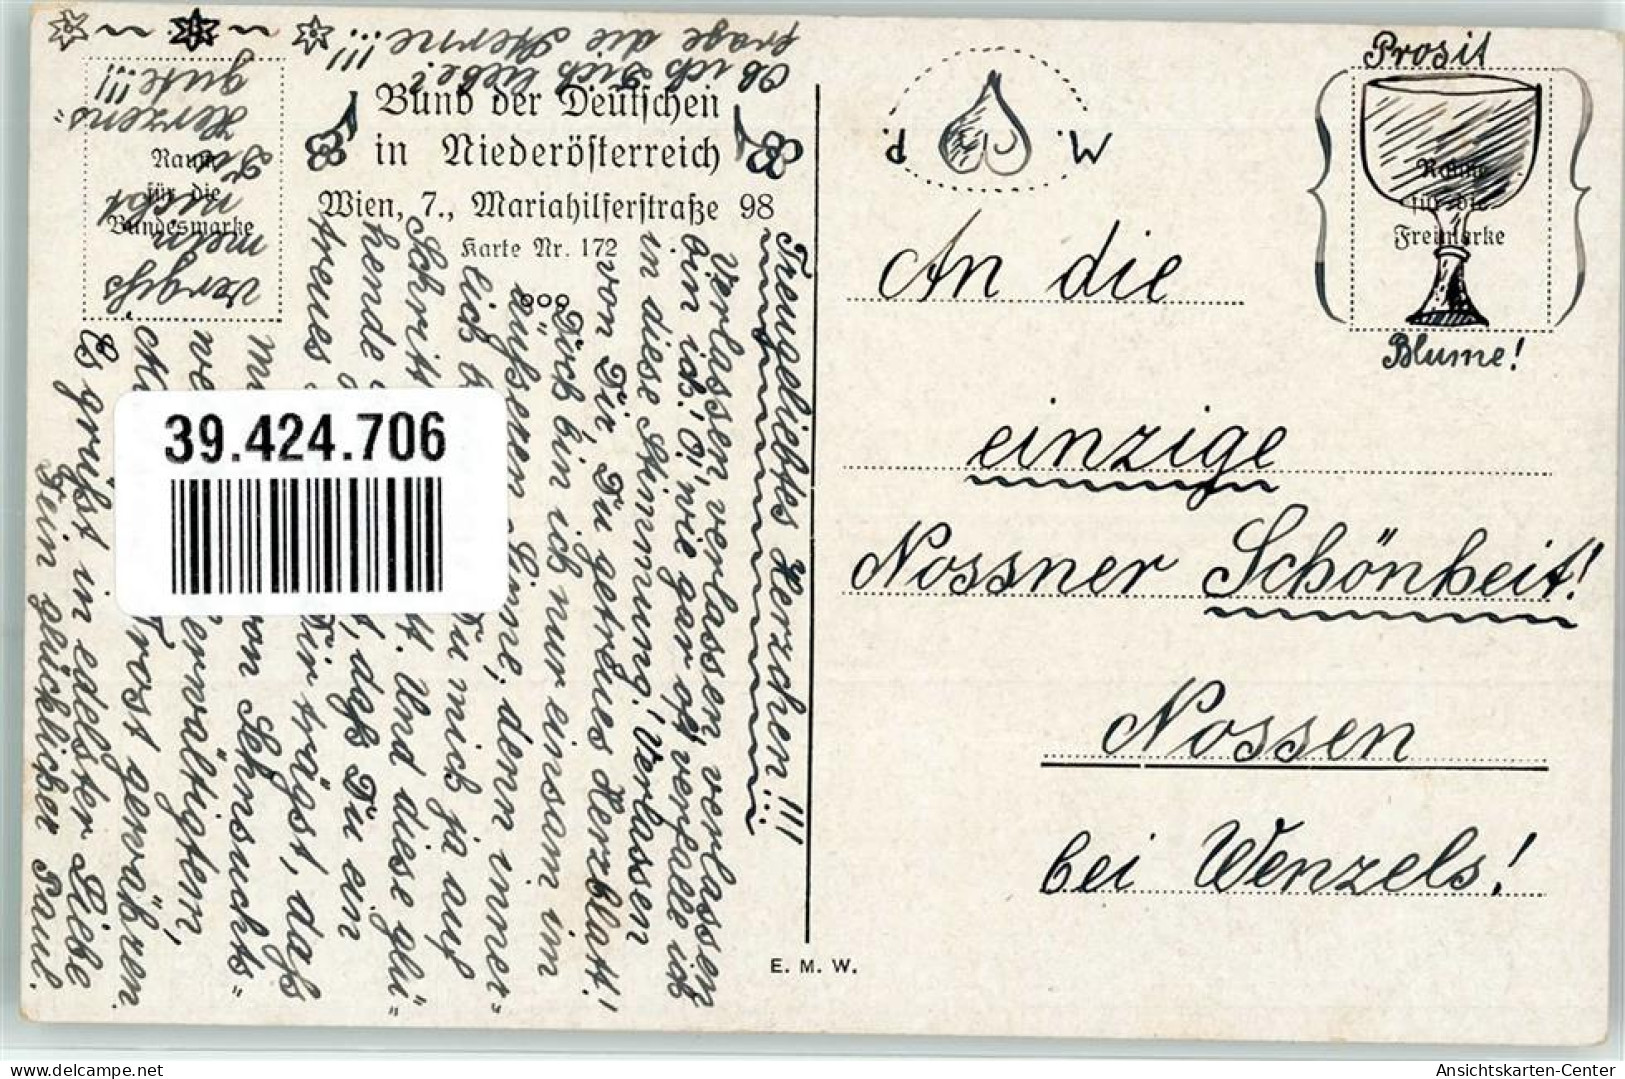 Prosit
Blume!
P. M.
An die
einzige
Nossner Schönheit!
Nossen
bei Wenzels!
Bund der Deutschen
in Niederösterreich
Wien, 7., Mariahilferstraße 98
Karte Nr. 172
Raum
für die
Bundesmarke
Raum
für die
Freimarke
E. M. W.
39.424.706
Treugeliebtes Herzchen!!!
Verlassen, verlassen, verlassen
bin ich! O, wie gar oft verfalle ich
in diese Stimmung! Verlassen
von Dir, Du getreues Herzblatt!
Doch bin ich nur einsam im
äußeren Sinne, denn inner-
lich Du mich ja auf
Schritt Und diese glü-
hende daß Du ein
treues Dir trägst, daß
von Sehnsuchts-
erwältigten,
Trost gewähren.
Es grüßt in edelster Liebe
Dein glücklicher Paul.
Vergiß
mein
nicht
Du
Herzens-
gute!!!
Ob ich Dich liebe?
frage die Sterne!!!
Ansichtskarten-Center